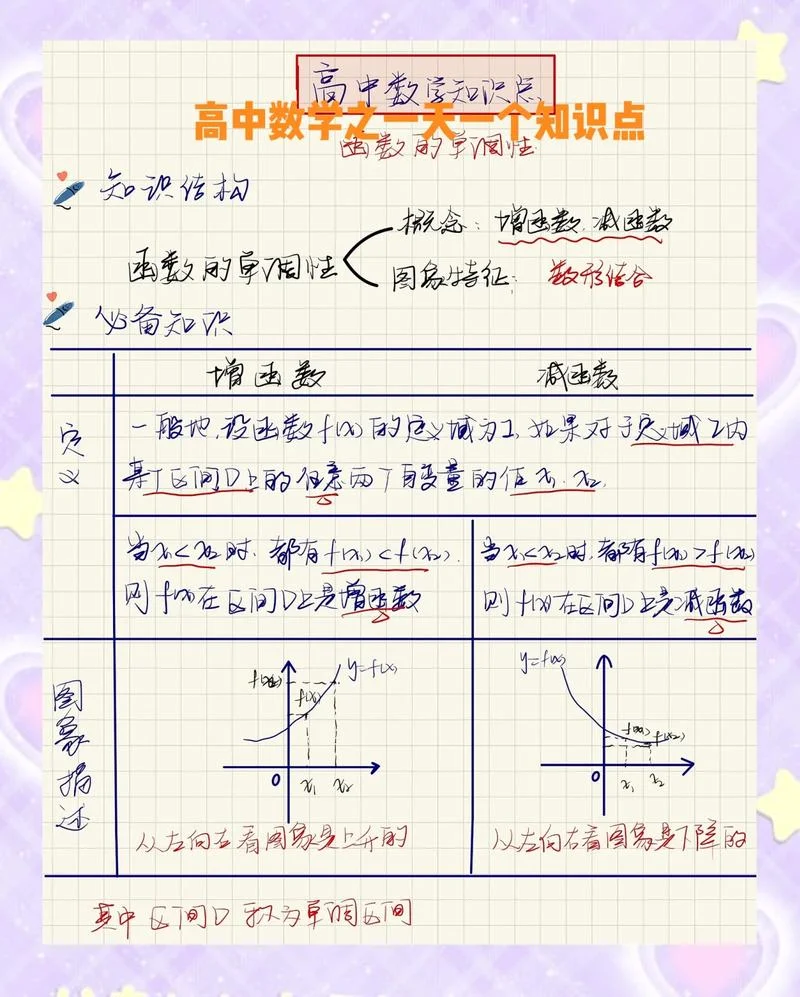 高中数学知识点
高中数学之一天一个知识点
函数的单调性
知识结构
函数的单调性
概念：增函数、减函数
图象特征：数形结合
必备知识
增函数
减函数
定义
一般地，设函数f(x)的定义域为I，如果对于定义域I内
某个区间D上的任意两个自变量的值x₁、x₂，
当x₁<x₂时，都有f(x₁)<f(x₂)，
则f(x)在区间D上是增函数
当x₁<x₂时，都有f(x₁)>f(x₂)
则f(x)在区间D上是减函数
图象描述
f(x₂)
f(x₁)
y=f(x)
O
x₁
x₂
从左向右看图象是上升的
y=f(x)
f(x₁)
f(x₂)
O
x₁
x₂
从左向右看图象是下降的
其中区间D称为单调区间